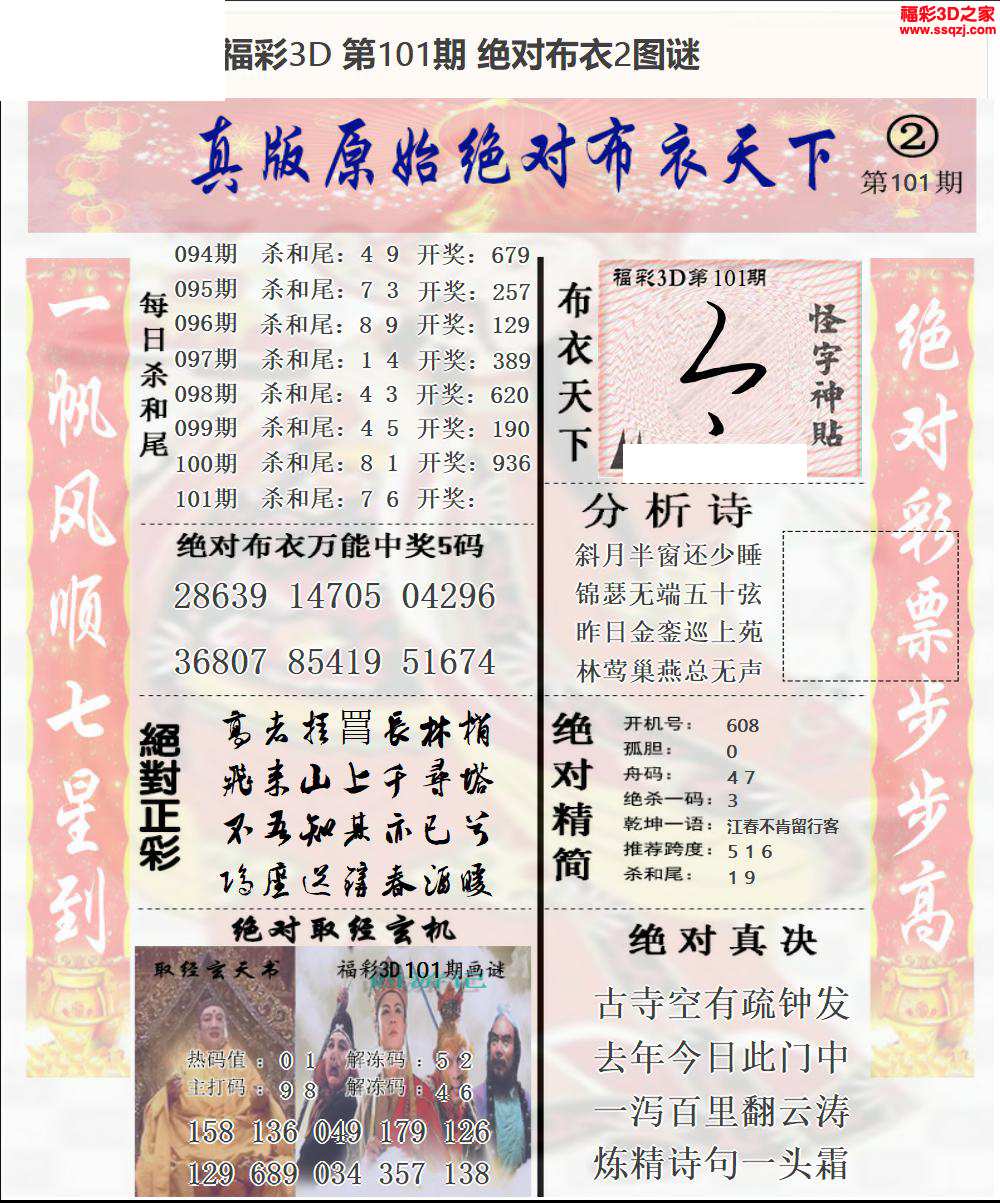 福彩3D之家
www.ssqzj.com
福彩3D 第101期 绝对布衣2图谜
真版原始绝对布衣天下
②
第101期
一帆风顺七星到
每日杀和尾
094期 杀和尾：4 9 开奖：679
095期 杀和尾：7 3 开奖：257
096期 杀和尾：8 9 开奖：129
097期 杀和尾：1 4 开奖：389
098期 杀和尾：4 3 开奖：620
099期 杀和尾：4 5 开奖：190
100期 杀和尾：8 1 开奖：936
101期 杀和尾：7 6 开奖：
绝对布衣万能中奖5码
28639 14705 04296
36807 85419 51674
絕對正彩
高老挂罥長林梢
飛来山上千尋塔
不吾知其亦已兮
鸣座送譁春酒暖
绝对取经玄机
取经玄天书
福彩3D101期画谜
热码值：0 1 解冻码：5 2
主打码：9 8 解冻码：4 6
158 136 049 179 126
129 689 034 357 138
布衣天下
福彩3D第101期
怪字神貼
分析诗
斜月半窗还少睡
锦瑟无端五十弦
昨日金銮巡上苑
林莺巢燕总无声
绝对精简
开机号：608
孤胆：0
舟码：4 7
绝杀一码：3
乾坤一语：江春不肯留行客
推荐跨度：5 1 6
杀和尾：1 9
绝对真决
古寺空有疏钟发
去年今日此门中
一泻百里翻云涛
炼精诗句一头霜
绝对彩票步步高